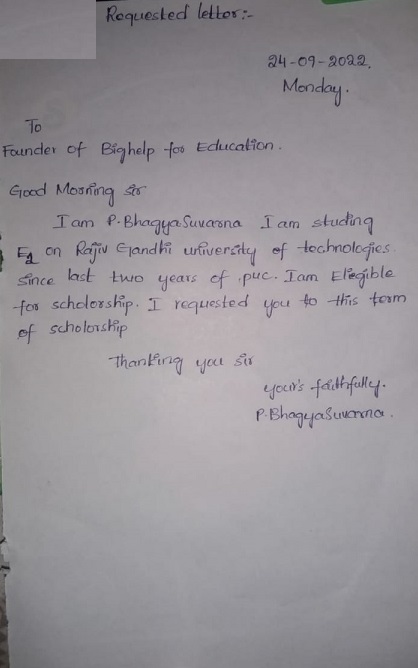 Requested letter:-
24-09-2022.
Monday.
To
Founder of Bighelp for Education.
Good Morning sir
I am P.BhagyaSuvarna I am studing
E1 on Rajiv Gandhi university of technologies.
since last two years of puc. I am Elegible
for scholorship. I requested you to this term
of scholorship
Thanking you sir
your's faithfully.
P.BhagyaSuvarna.